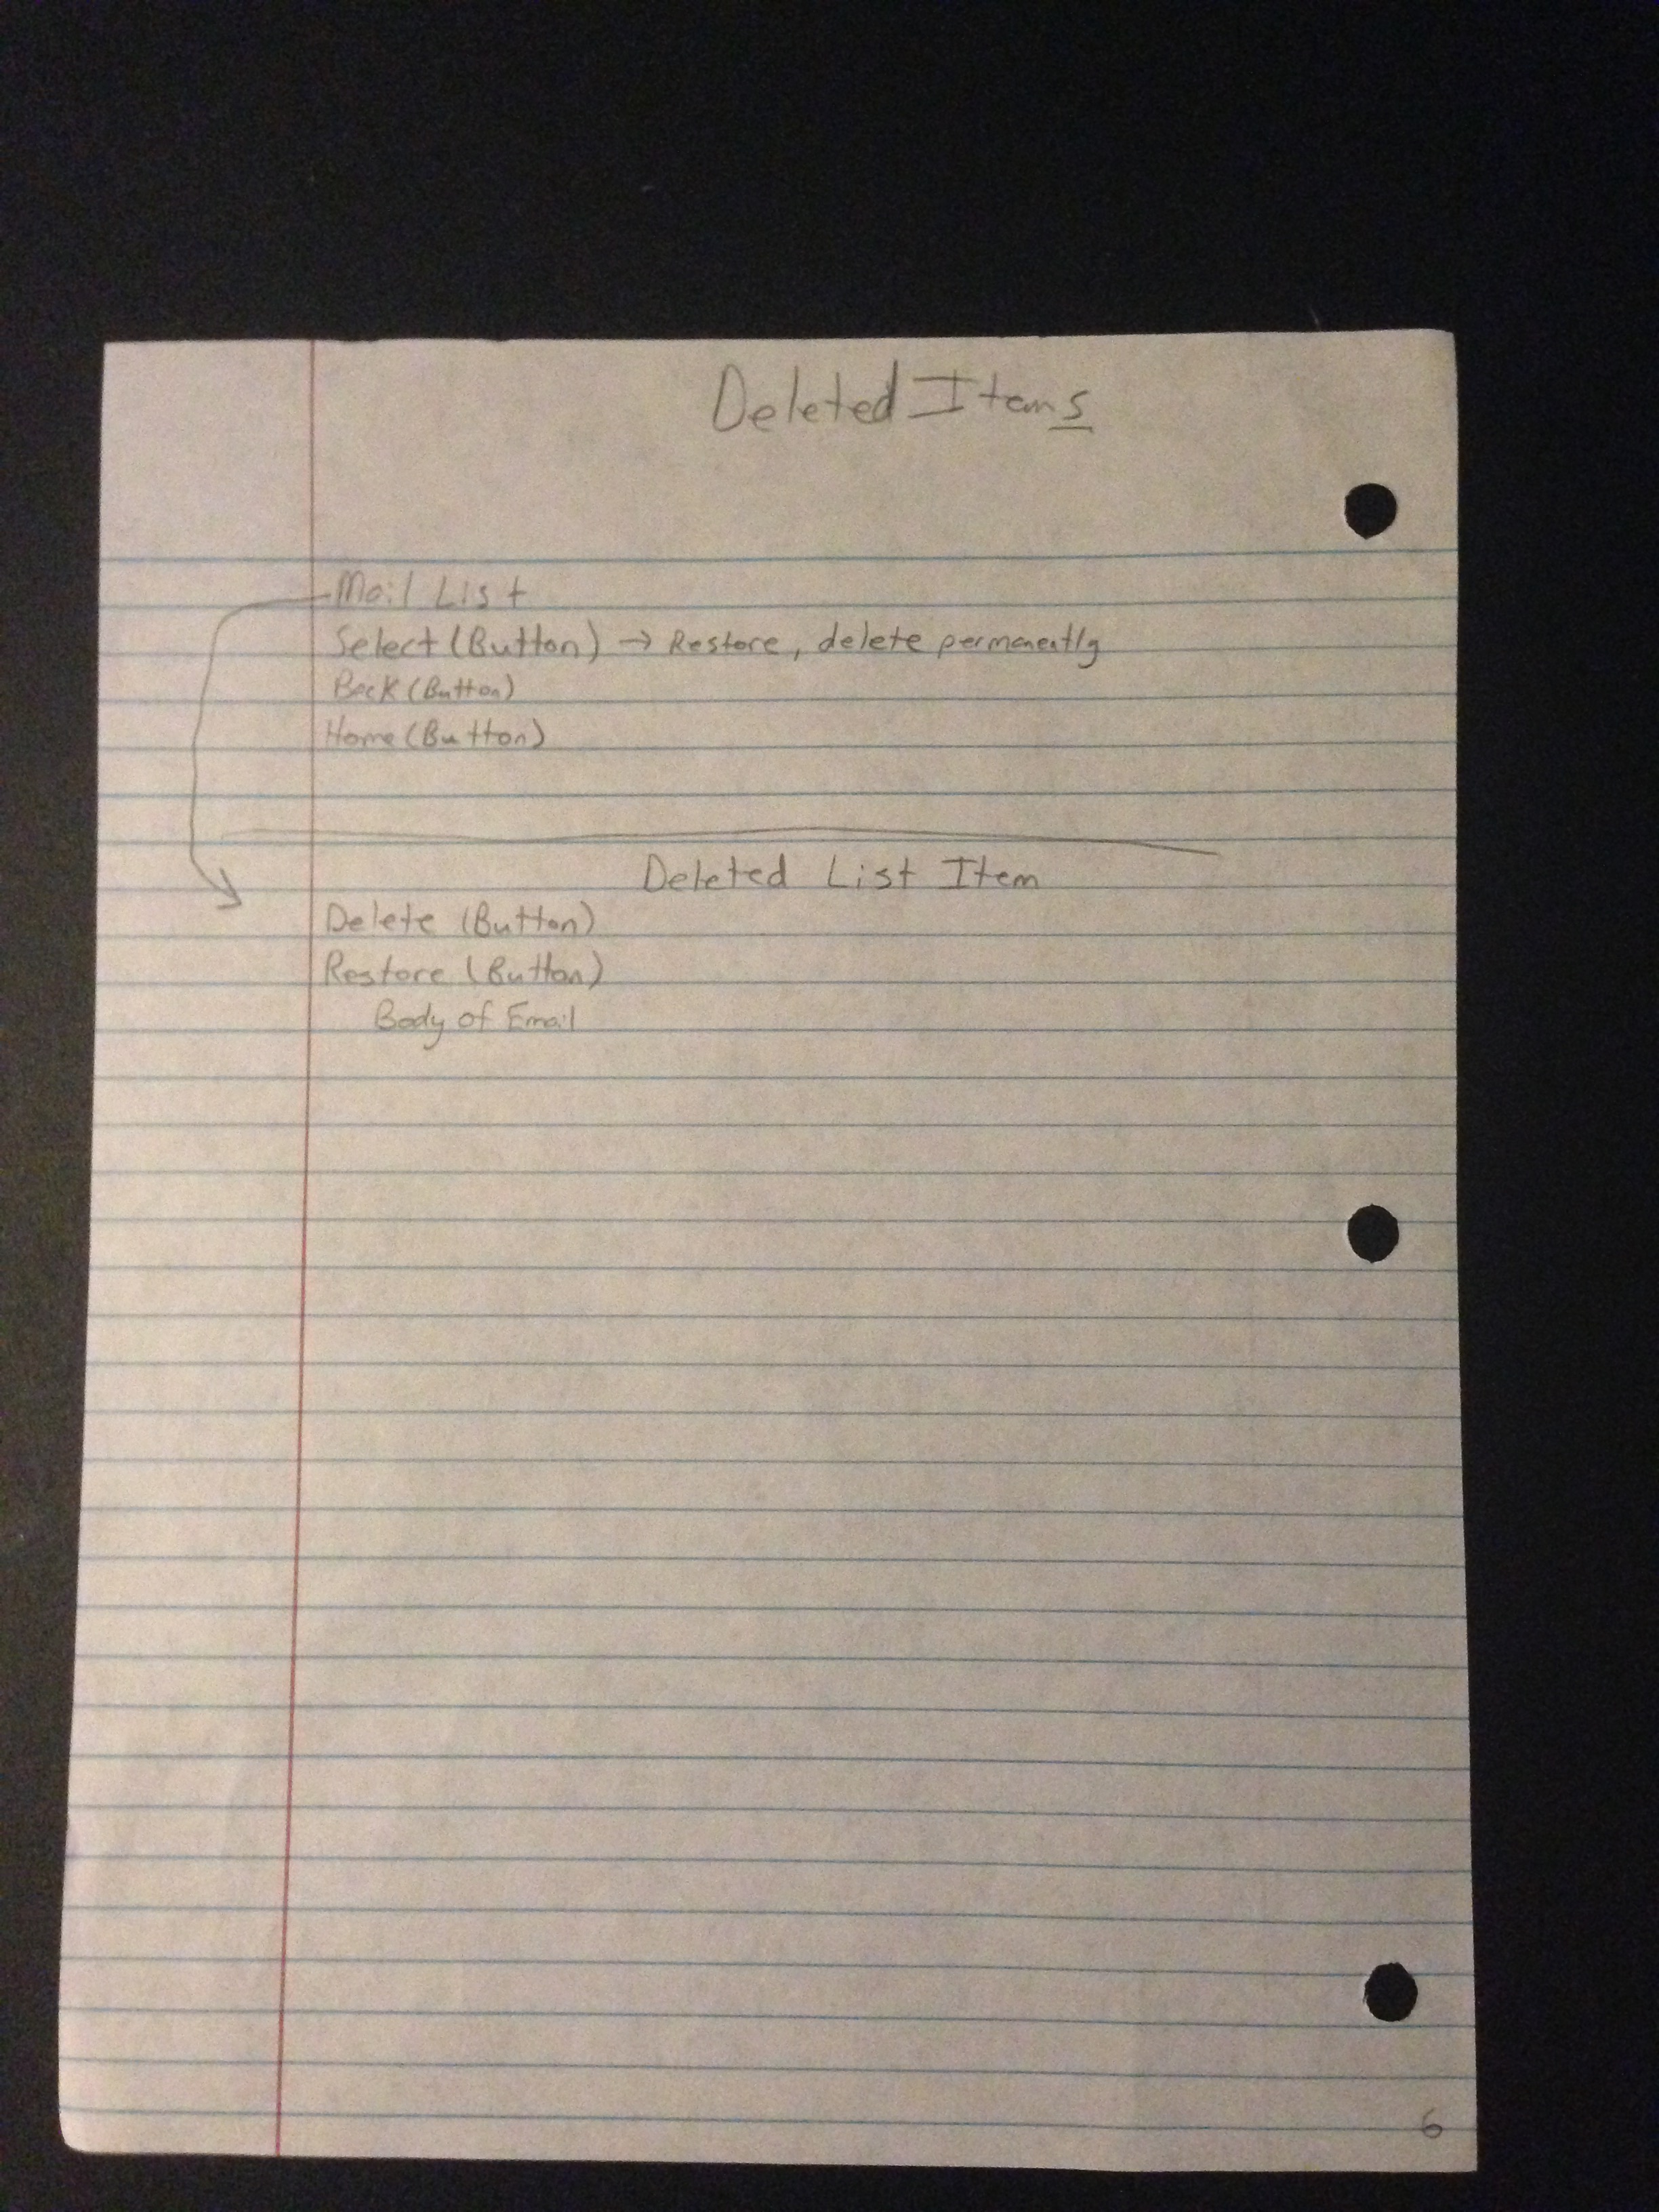 Deleted Items
Mail List
Select (Button) → Restore, delete permanently
Back (Button)
Home (Button)
Deleted List Item
Delete (Button)
Restore (Button)
Body of Email
6